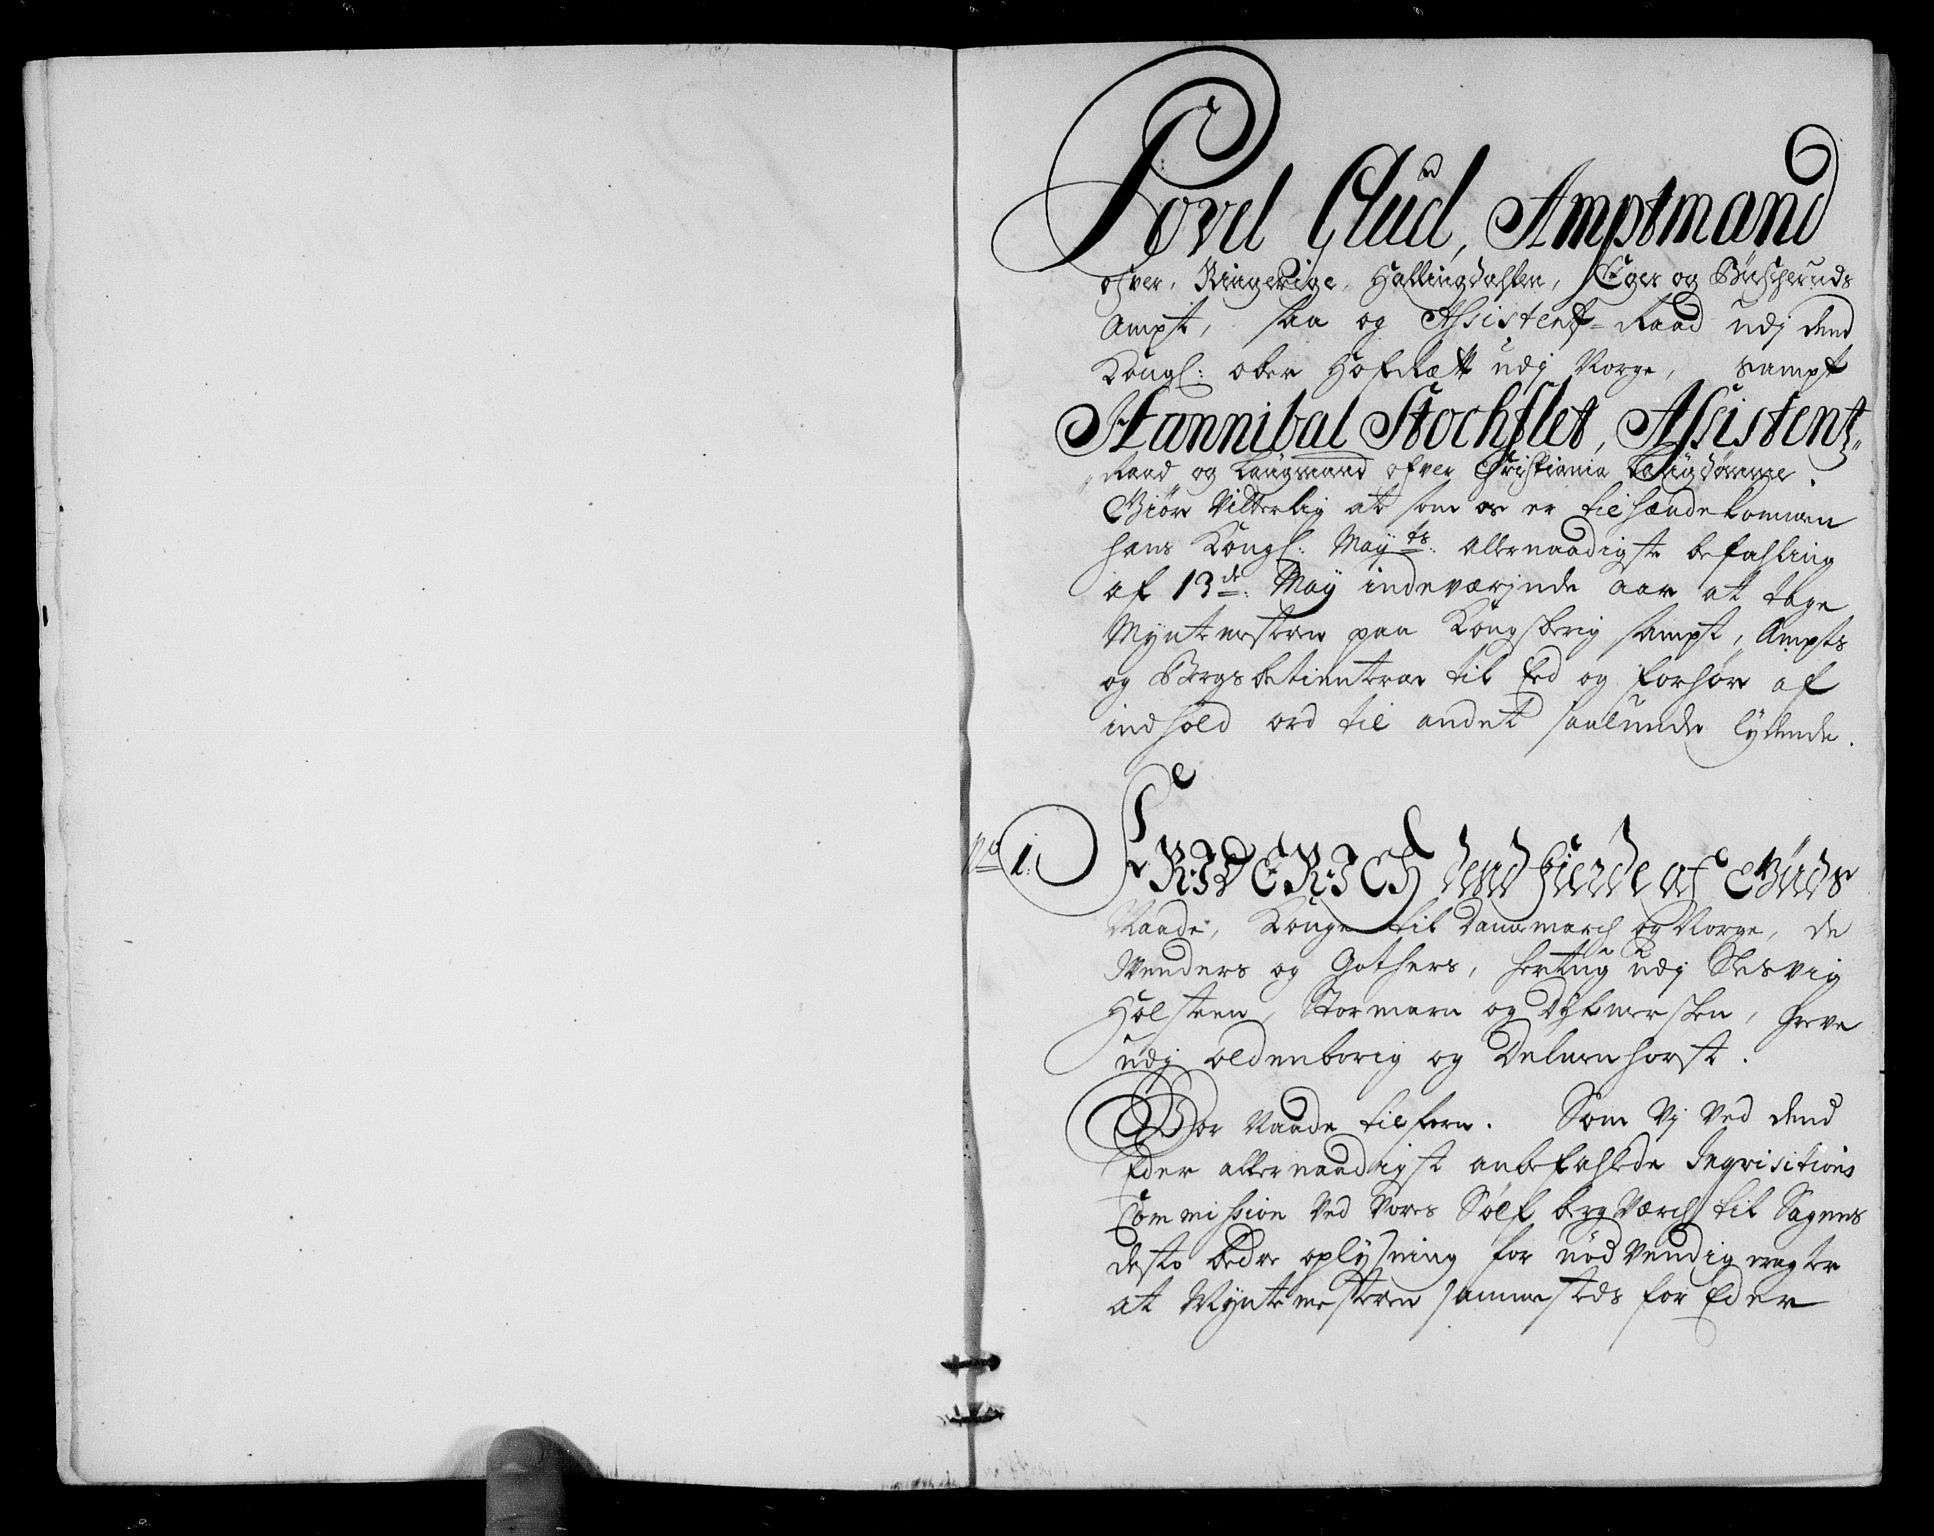 Povel Glud, Amptmand
ofver, Ringerige, Hallingdahlen, Eger og Buscheruds
Ampt, saa og Assistentz-Raad udj dend
Kongl: ober Hof Rætt udj Norge, sampt
Hannibal Stochflet, Assistentz-
Raad og Laugmand ofver Christiania Laugdømme.
Giøre Vitterlig at som os er tilhændekommen
hans Kongl: May:ts: allernaadigste befahling
af 13de: May indeværende aar at tage
Myntemesteren paa Kongsberig sampt, Ampts
og Bergsbetienterne til Eed og forhør af
indhold ord til andet saalunde lydende.
No 1. FRIDERICH dend fierde af Guds
Naade, Konge til Danmarch og Norge, de
Wenders og Gothers, hertug udj Slesvig
Holsteen, Stormarn og Dytmersken, Greve
udj Oldenborig og Delmenhorst.
Vor Naade tilforn. Som Vj Ved dend
Eder allernaadigst anbefahlede Inqvisitions
Commission Ved Vores Sølf bergVærch til Sagens
desto bedre oplysning for nødVendig eragter
at Myntemesteren sammesteds for Eder